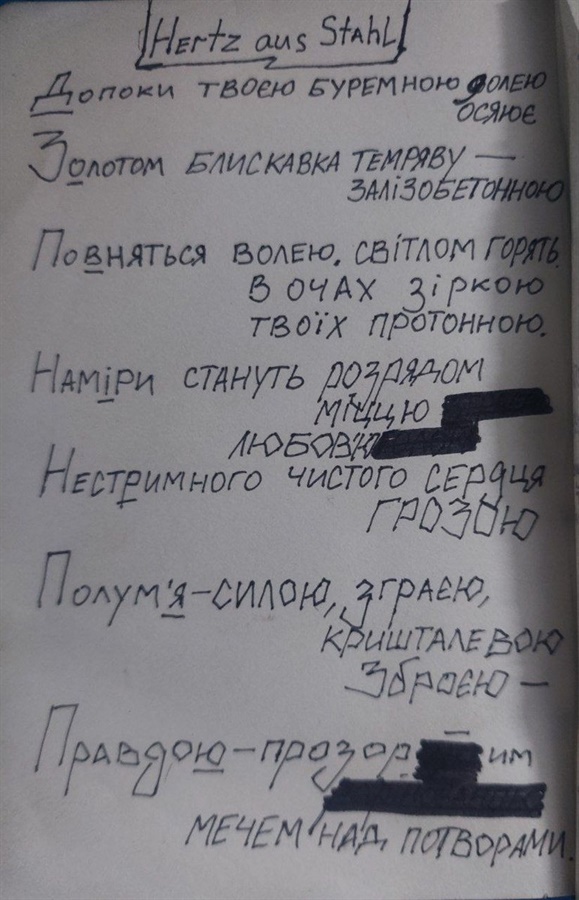 Hertz aus Stahl
Допоки твоєю буремною волею
осяює
Золотом блискавка темряву —
залізобетонною
Повняться волею. Світлом горять
в очах зіркою
твоїх протонною.
Наміри стануть розрядом
міццю
любов'ю
Нестримного чистого сердця
грозою
Полум'я-силою, зграєю,
кришталевою
зброєю —
Правдою-прозорим
мечем над потворами.